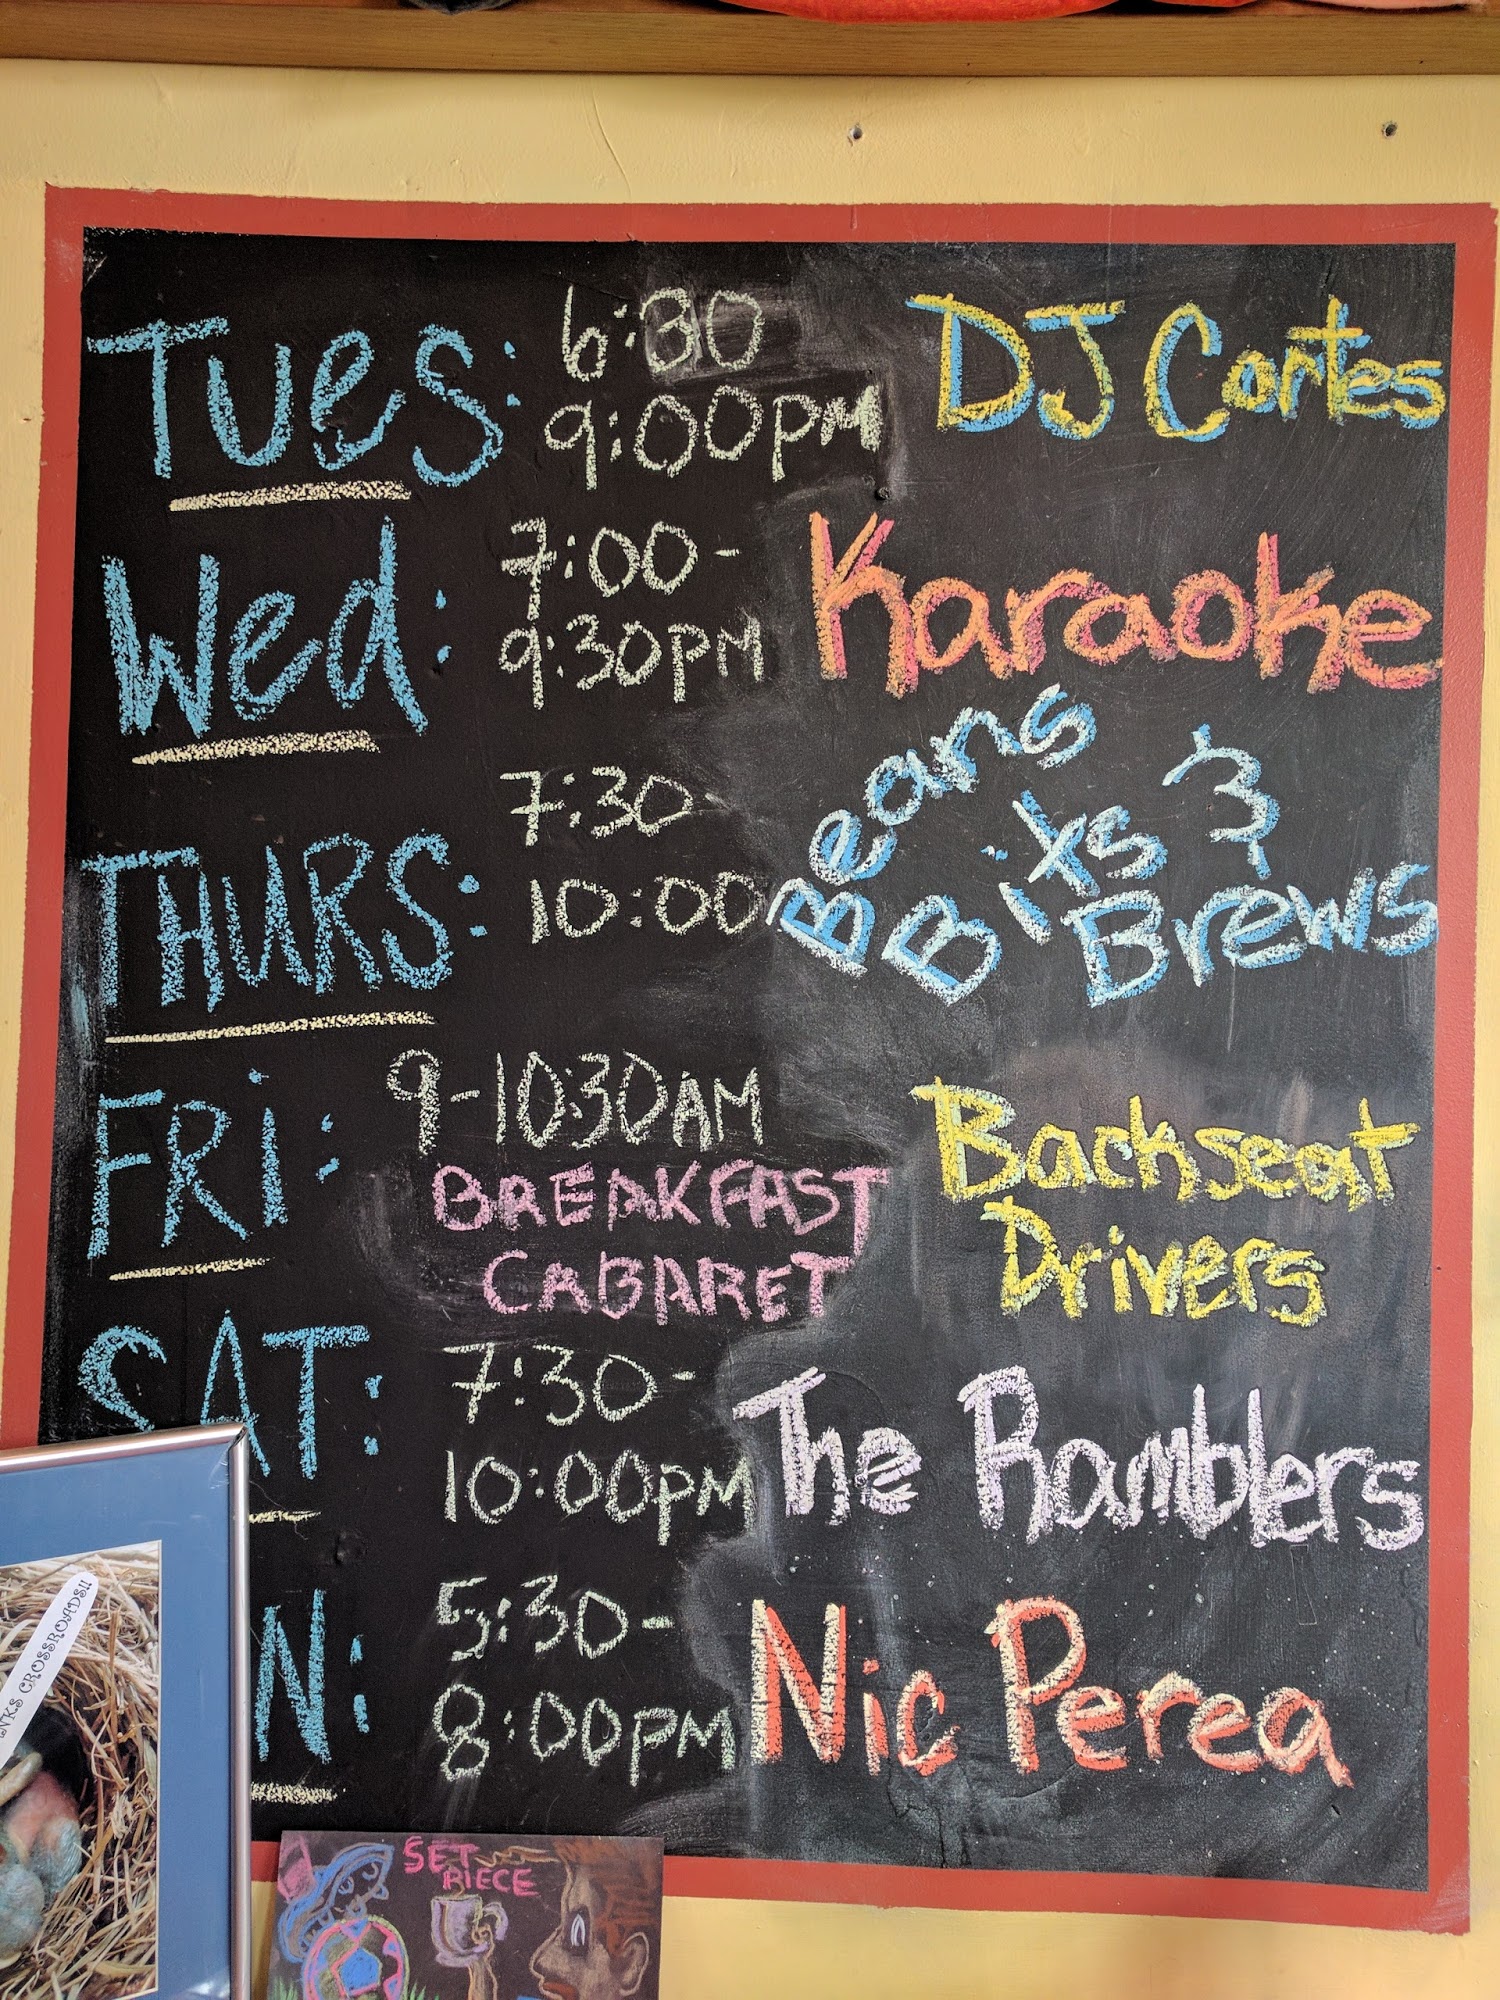 Tues: 6:30 DJ Cortes
9:00PM
Wed: 7:00- Karaoke
9:30PM
THURS: 7:30- Beans
10:00 Bixs &
Brews
FRi: 9-10:30AM Backseat
BREAKFAST Drivers
CABARET
SAT: 7:30- The Ramblers
10:00PM
N: 5:30- Nic Perea
8:00PM
NKS CROSSROADS!!
SET
PIECE